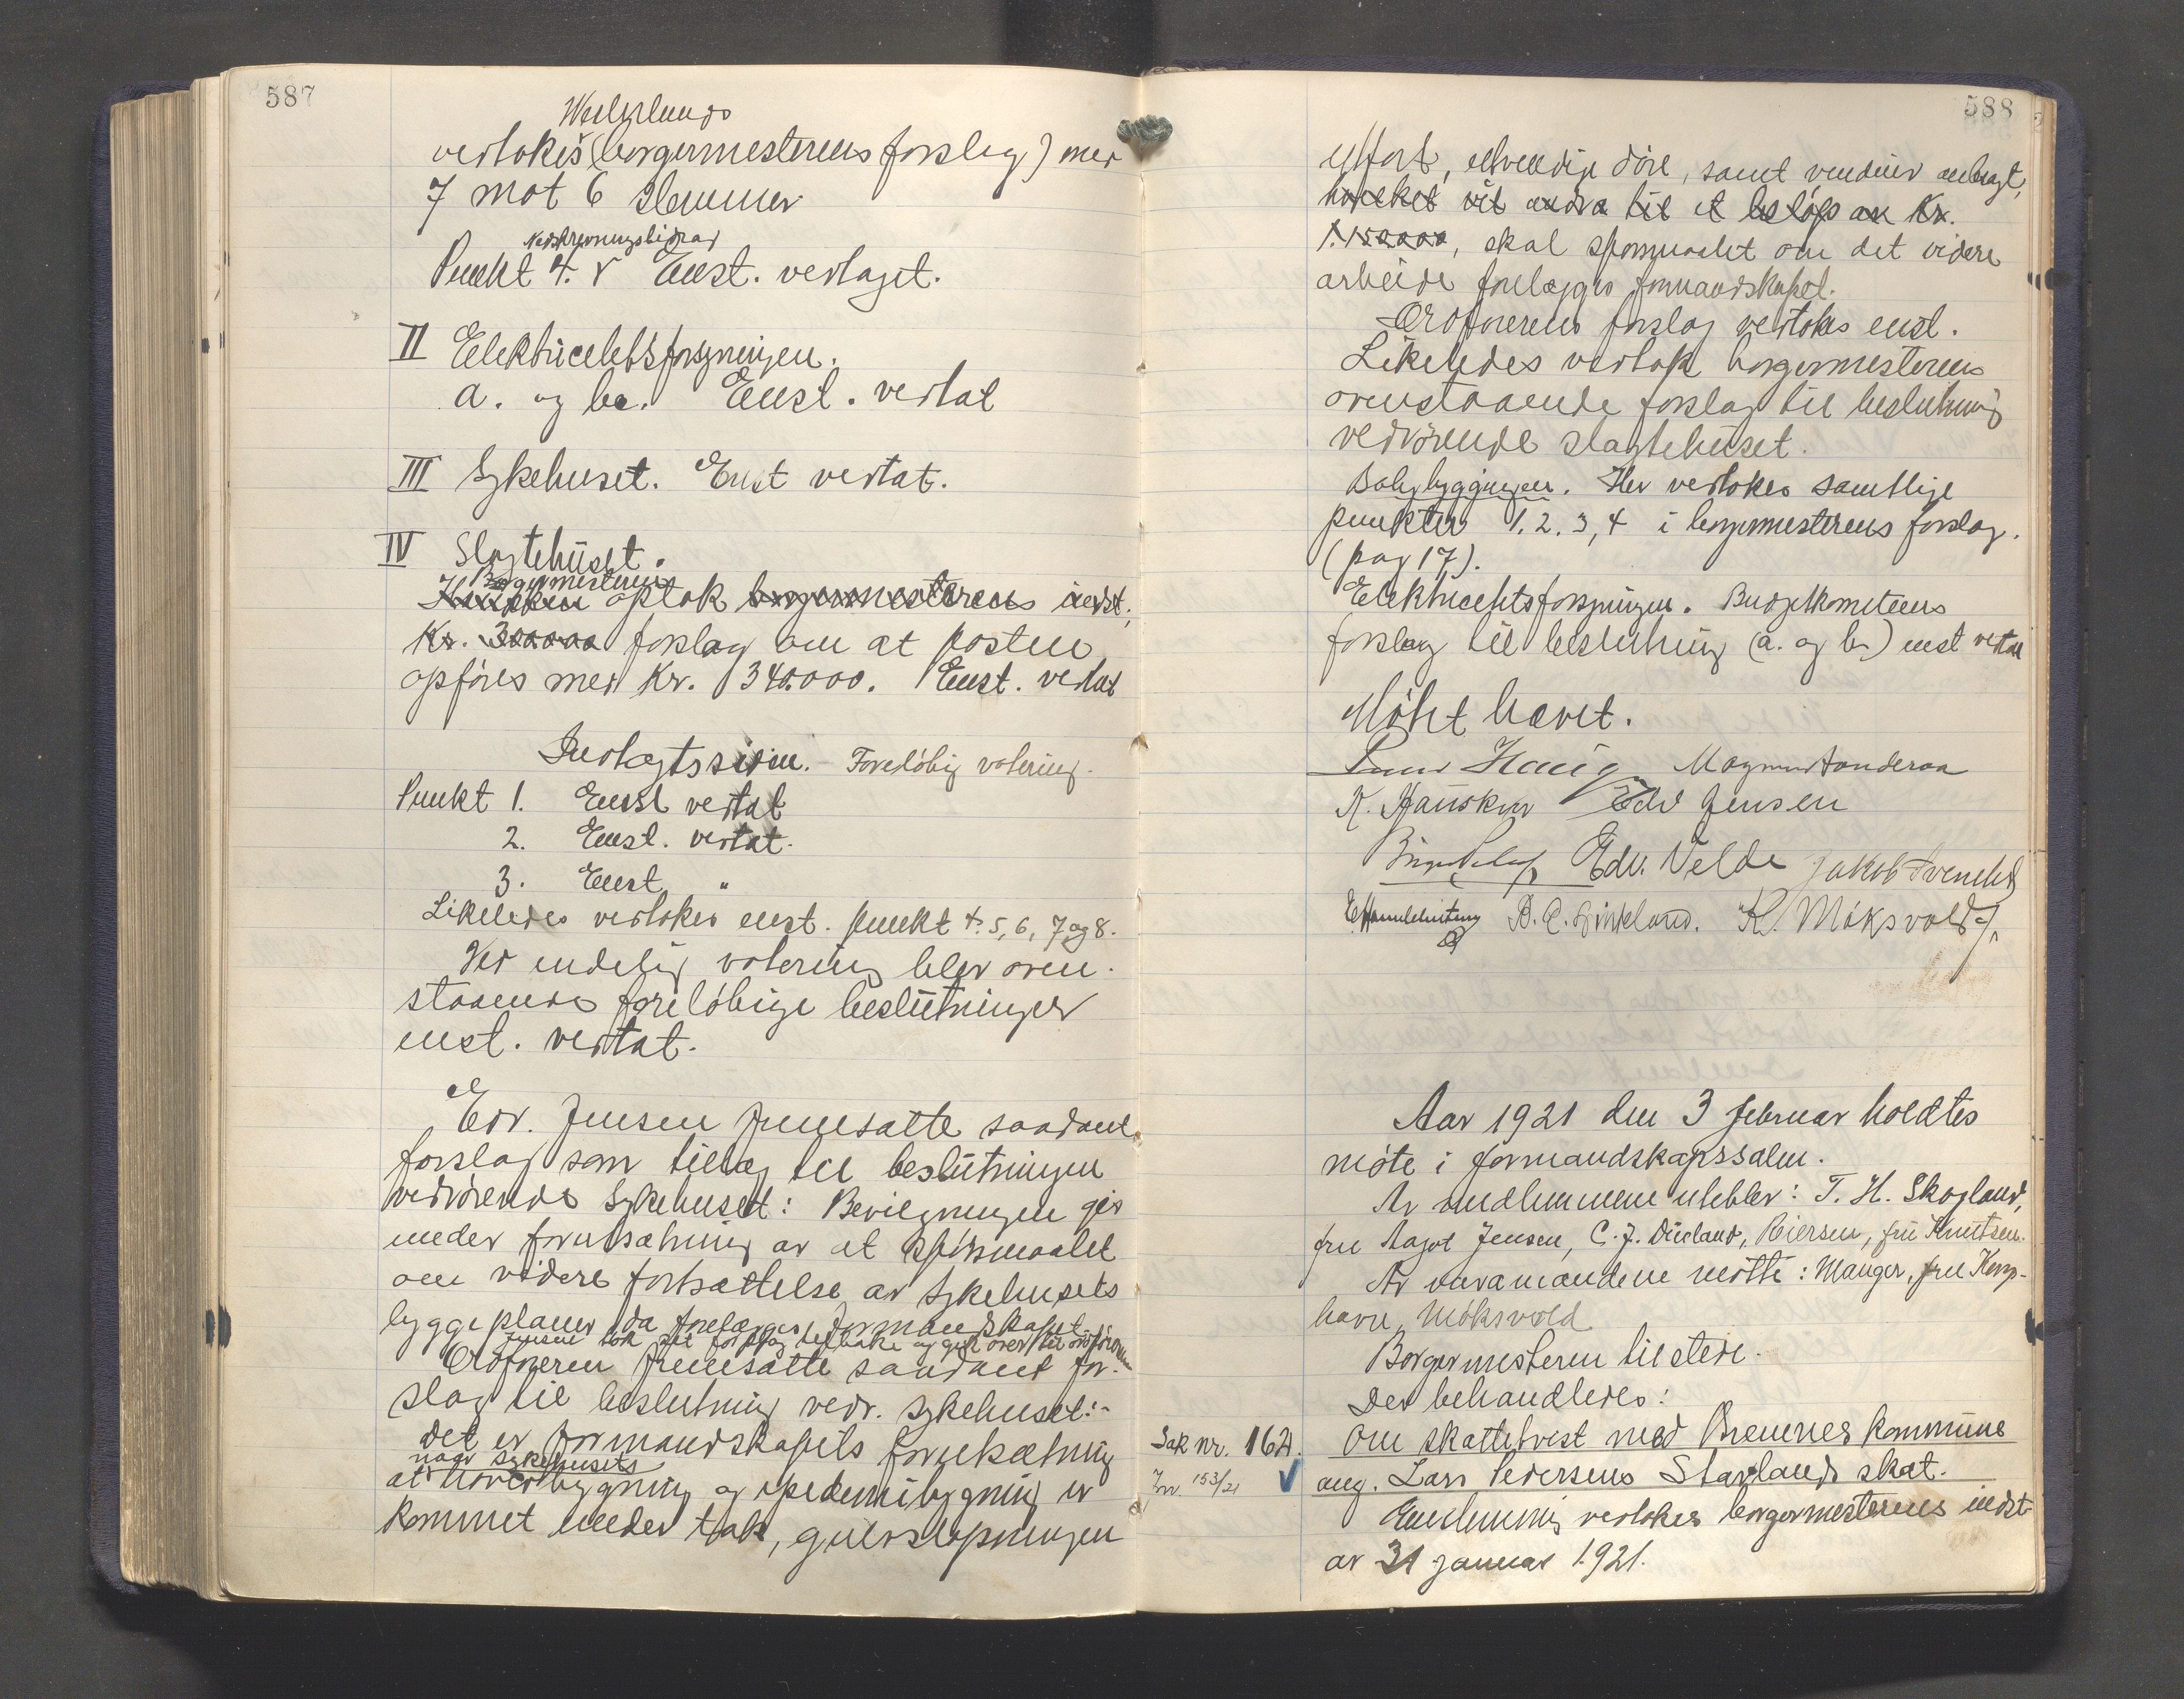 587
Westerlunds
vedtokes (borgermesterens forslag) med
7 mot 6 stemmer
Nedskrivningsbidrag
Punkt 4. V Enst. vedtaget.
II Elektricitetsforsyningen.
a. og b. Enst. vedtat
III Sykehuset. Enst vedtat.
IV Slagtehuset.
Borgermesteren
optok borgermesterens indst.
Kr. 300000 forslag om at posten
opføres med Kr. 340.000. Enst. vedtat
Indtægtssiden. - Foreløbig votering.
Punkt 1. Enst vedtat
2. Enst. vedtat.
3. Enst "
Likeledes vedtokes enst. punkt 4. 5, 6, 7 og 8.
Ved endelig votering blev oven-
staaende foreløbige beslutninger
enst. vedtat.
Edv. Jensen fremsatte saadant
forslag som tillæg til beslutningen
vedrørende Sykehuset: Bevilgningen gis
under forutsætning av at spørsmaalet
om videre fortsættelse av Sykehusets
byggeplaner da forelægges formandskapet.
Jensen tok sit forslag tilbake og gik over til ordførerens
Ordføreren fremsatte saadant for-
slag til beslutning vedr. Sykehuset:-
Det er formandskapets forutsætning
naar Sykehusets
at hovedbygning og epidemibygning er
kommet under tak, gulvstøpningen
588
utført, utvendige døre, samt vinduer anbragt,
hvilket vil andra til et beløp av Kr.
1.150000, skal spørsmaalet om det videre
arbeide forelægges formandskapet.
Ordførerens forslag vedtokes enst.
Likeledes vedtok borgermesterens
ovenstaaende forslag til beslutning
vedrørende slagtehuset.
Boligbyggingen. Her vedtokes samtlige
punkter 1. 2. 3, 4 i borgermesterens forslag.
(pag 17).
Elektricitetsforsyningen. Budgetkomiteens
forslag til beslutning (a. og b.) enst vedtat
Møtet hævet.
Haug Magnus Tonderaa
K. Hausken Edv Jensen
Edv. Velde Jakob
B. C. K. Moksvold
Aar 1921 den 3 februar holdtes
møte i formandskapssalen.
Av medlemmene uteblev: T. H. Skogland,
fru Aagot Jensen, C. J. Dueland, Reiersen, fru Knutsen.
Av varamændene møtte: Manger, fru Kong-
havn, Moksvold
Borgermesteren tilstede.
Der behandledes:
Sak nr. 162.
Jnr. 153/21
Om skattetvist med Bremnes kommune
ang. Lars Pedersens Stavlands skat.
Enstemmig vedtokes borgermesterens indst.
av 31 januar 1921.